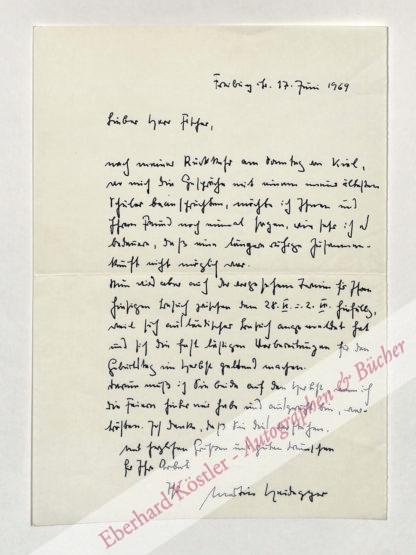 Freiburg i. Br. 17. Juni 1969
Lieber Herr Fischer,
nach meiner Rückkehr am Sonntag von Kiel,
wo mich die Gespräche mit einem meiner ältesten
Schüler beanspruchten, möchte ich Ihnen und
Ihrem Freund noch einmal sagen, wie sehr ich
bedauere, daß eine längere ruhige Zusammen-
kunft nicht möglich war.
Nun wird aber auch der vorgesehene Termin für Ihren
hiesigen Besuch zwischen dem 28. VI. - 2. VII. hinfällig,
weil sich ausländischer Besuch angemeldet hat
und sich die fast lästigen Vorbereitungen für den
Geburtstag im Herbst geltend machen.
Darum muß ich Sie beide auf den Herbst, wenn ich
die Feiern hinter mir habe und ausgeruht bin, ver-
trösten. Ich denke, daß Sie dies verstehen.
Mit herzlichen Grüßen und guten Wünschen
für Ihre Arbeit
Ihr
Martin Heidegger
Eberhard Köstler - Autographen & Bücher